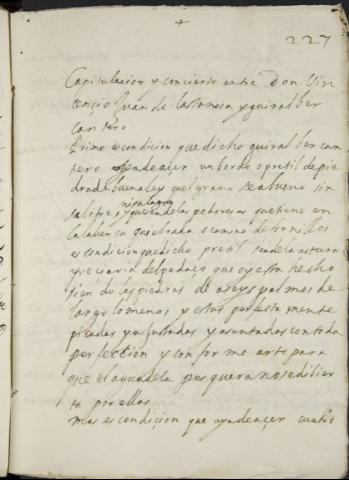 +
227
Capitulacion y concierto entre Don Vin
cencio Juan de lastanosa y guiral ber
cantero
Primo es condicion que dicho guiral ber can
tero a de açer un bordo o pretil de pie
dra de buena ley quel grano sea bueno sin
ni
salitre y que sea de las pedreras que tiene en
la barca quebrada o camino de fornillos
es condicion que dicho pretil sea de la altura
del pedaço que oy esta hecho
sien do las piedras de a seys palmos de
largo lo menos y estas perfectamente
picadas y ajustadas y asentadas con toda
perfection y conforme arte para
que el agua de la pesquera no se dibier
ta por ellas
mas es condiçion que aya de açer cuatro